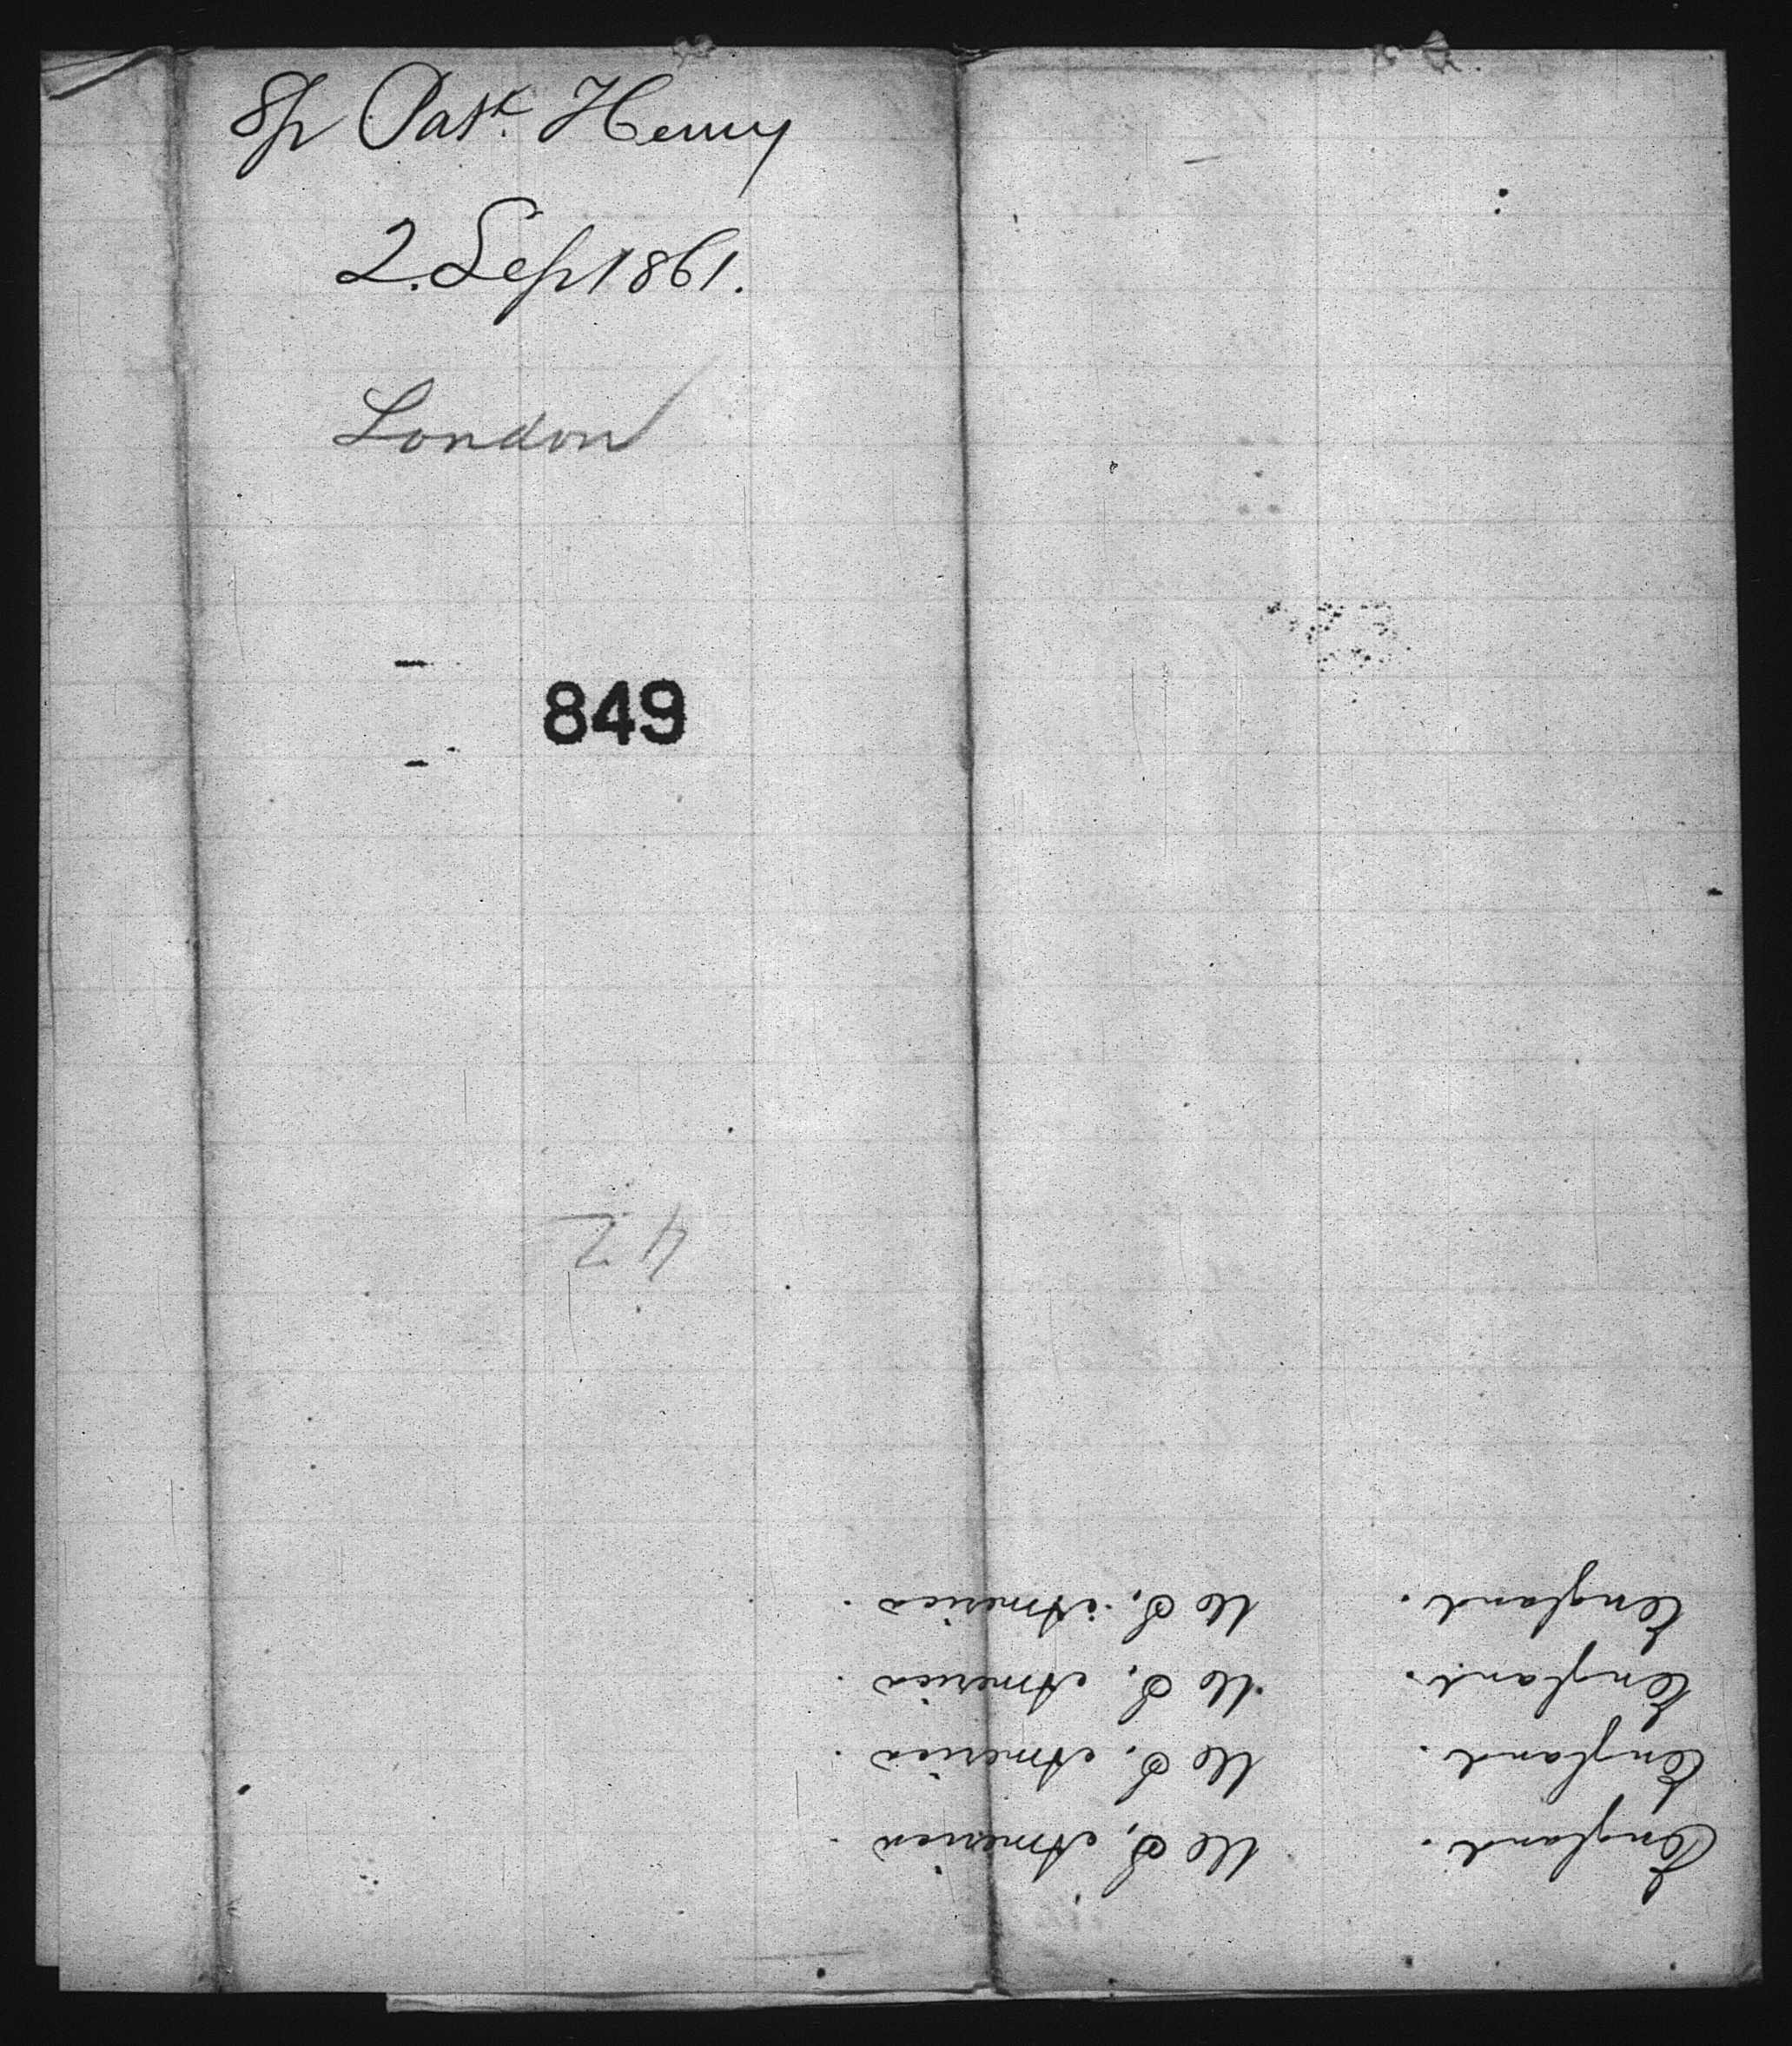 Sh Patk. Henry
2. Sep 1861.
London
849
42
England. U S, America.
England. U S, America.
England. U S, America.
England. U S, America.